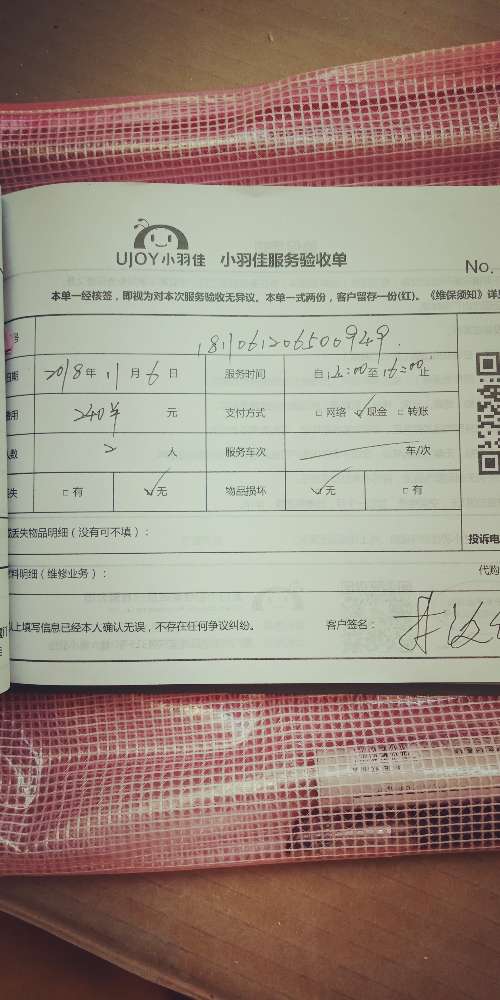 UJOY小羽佳 小羽佳服务验收单
No.
本单一经核签，即视为对本次服务验收无异议。本单一式两份，客户留存一份(红)。《维保须知》详
号 181106120650 0949
日期 2018年 11月 6日 服务时间 自 12:00至 16:00止
费用 240 元 支付方式 □网络 ☑现金 □转账
人数 2 人 服务车次 车/次
丢失 □有 ☑无 物品损坏 ☑无 □有
丢失物品明细（没有可不填）：
投诉电
料明细（维修业务）：
代购
以上填写信息已经本人确认无误，不存在任何争议纠纷。 客户签名：